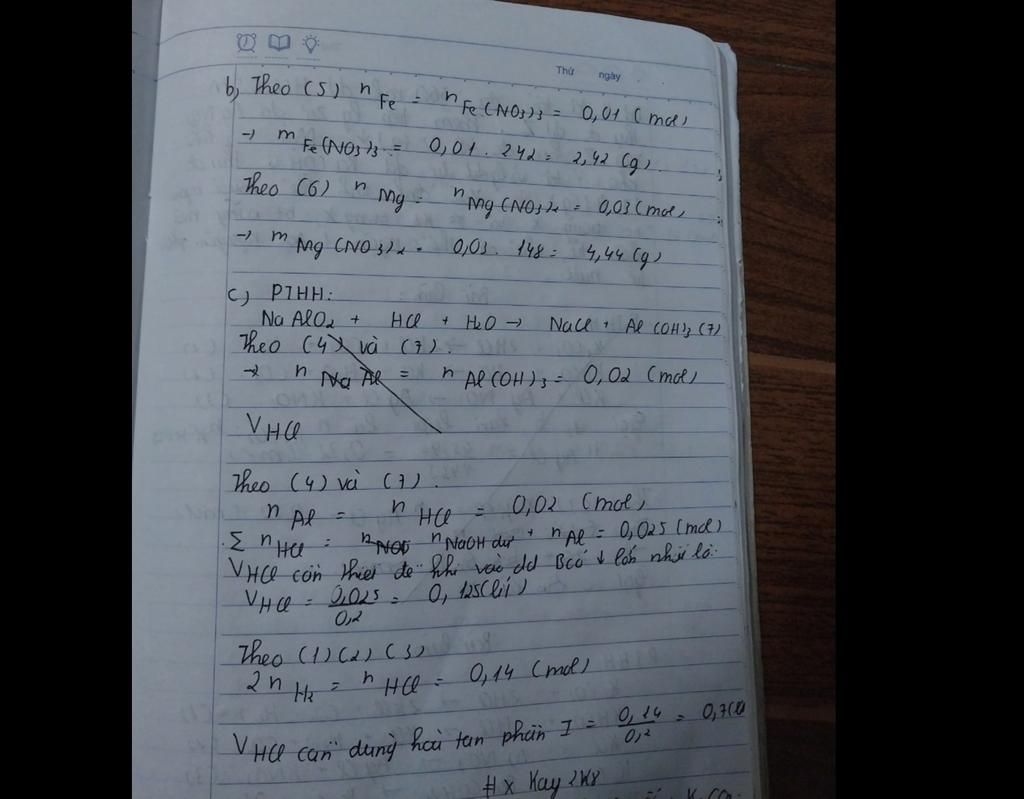 Thứ ngày
b) Theo (5) n Fe = n Fe(NO3)3 = 0,01 (mol)
→ m Fe(NO3)3 = 0,01 . 242 = 2,42 (g).
Theo (6) n Mg = n Mg(NO3)2 = 0,03 (mol)
→ m Mg(NO3)2 = 0,03 . 148 = 4,44 (g)
c) PTHH:
NaAlO2 + HCl + H2O → NaCl + Al(OH)3 (7)
Theo (4) và (7).
→ n Al = n Al(OH)3 = 0,02 (mol)
V HCl
Theo (4) và (7).
n Al = n HCl = 0,02 (mol)
Σ n HCl = n NaOH dư + n Al = 0,025 (mol)
V HCl cần thiết để khi vào dd B có ↓ lớn nhất là:
V HCl = 0,025/0,2 = 0,125 (lít)
Theo (1) (2) (3)
2n H2 = n HCl = 0,14 (mol)
V HCl cần dùng hoà tan phần I = 0,14/0,2 = 0,7 (l)